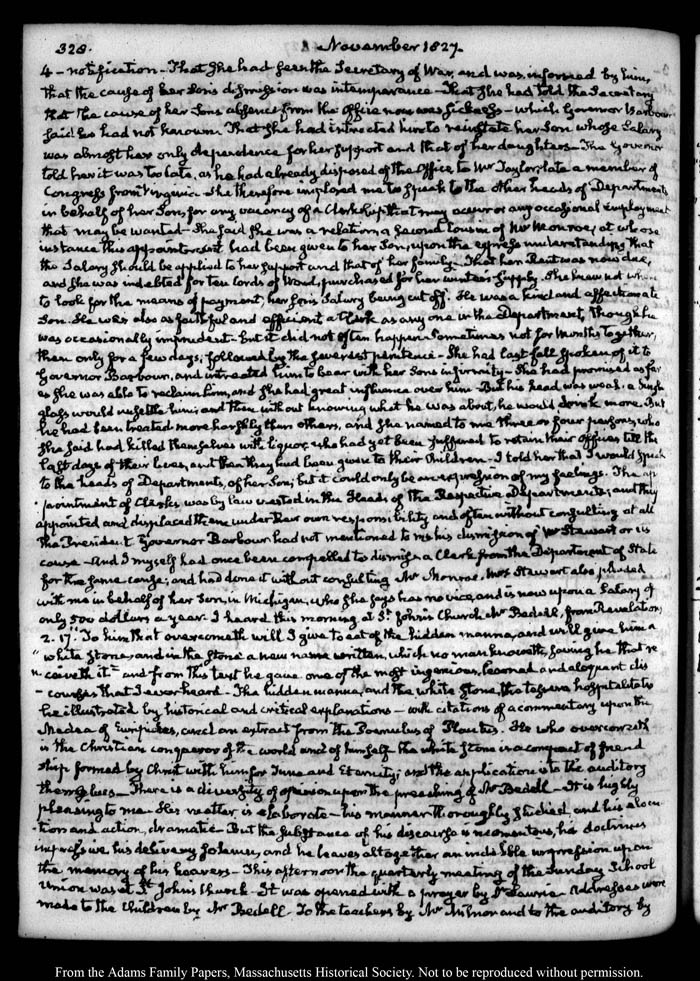 328.
November 1827
4 - notification - That she had seen the Secretary of War, and was informed by him,
that the cause of her Son's dismission was intemperance - That she had told the Secretary
that the cause of her Sons absence from the Office now was sickness - which Governor Barbour
said he had not known. That she had intreated him to reinstate her Son whose Salary
was almost her only dependence for her support and that of her daughters - The Governor
told her it was too late, as he had already disposed of the Office to Mr Taylor, late a member of
Congress from Virginia. She therefore implored me to speak to the other heads of Departments
in behalf of her Son, for any vacancy of a Clerkship that may occur or any occasional employment
that may be wanted - She said she was a relation, a Second Cousin of Mr Monroe, at whose
instance this appointment had been given to her Son, upon the express understanding that
the Salary should be applied to her support and that of her family - That her Rent was now due,
and she was indebted for ten cords of Wood, purchased for her winter's supply. She knew not where
to look for the means of payment, her Son's Salary being cut off. He was a kind and affectionate
Son. He was also as faithful and efficient a Clerk as any one in the Department, though he
was occasionally imprudent - but it did not often happen - Sometimes not for Months together,
then only for a few days; followed by the severest penitence - She had last fall spoken of it to
Governor Barbour, and intreated him to bear with her Sons infirmity - She had promised as far
as she was able to reclaim him, and she had great influence over him - But his head was weak. a single
glass would unsettle him; and then without knowing what he was about, he would drink more. But
he had been treated more harshly than others, and she named to me three or four persons, who
she said had killed themselves with liquor, who had yet been suffered to retain their Offices till the
last days of their lives, and then they had been given to their Children. I told her that I would speak
to the heads of Departments, of her Son; but it could only be an expression of my feelings. The ap
pointment of Clerks was by law vested in the Heads of the Respective Departments; and they
appointed and displaced them under their own responsibility and often without consulting at all
the President. Governor Barbour had not mentioned to me his dismission of Mr Stewart or its
cause - And I myself had once been compelled to dismiss a Clerk from the Department of State
for the same cause; and had done it without consulting Mr Monroe. Mrs Stewart also pleaded
with me in behalf of her Son, in Michigan, who she says has no vice, and is now upon a Salary of
only 500 dollars a year. I heard this morning at St. John's Church Mr Bedell, from Revelation
2. 17. "To him that overcometh will I give to eat of the hidden manna, and will give him a
" white stone, and in the stone a new name written, which no man knoweth, saving he that re
" ceiveth it" and from this text he gave one of the most ingenious, learned and eloquent dis
- courses that I ever heard - The hidden manna, and the white stone, the tessera hospitalitatis
he illustrated by historical and critical explanations - with citations of a commentary upon the
Medea of Euripides, and an extract from the Poenulus of Plautus. He who overcometh
is the Christian conqueror of the world and of himself - the white stone is a compact of friend
ship formed by Christ with him for Time and Eternity; and the application is to the auditory
themselves - There is a diversity of opinion upon the preaching of Mr Bedell - It is highly
pleasing to me. His matter is elaborate - his manner thoroughly studied, and his elocu
- tion and action, dramatic - But the substance of his discourse is momentous, his doctrines
impressive, his delivery solemn, and he leaves altogether an indelible impression upon
the memory of his hearers - This afternoon the quarterly meeting of the Sunday School
Union was at St Johns Church - It was opened with a prayer by Dr Laurie - Addresses were
made to the Children by Mr Bedell - To the teachers by Mr Milnor and to the auditory by
From the Adams Family Papers, Massachusetts Historical Society. Not to be reproduced without permission.